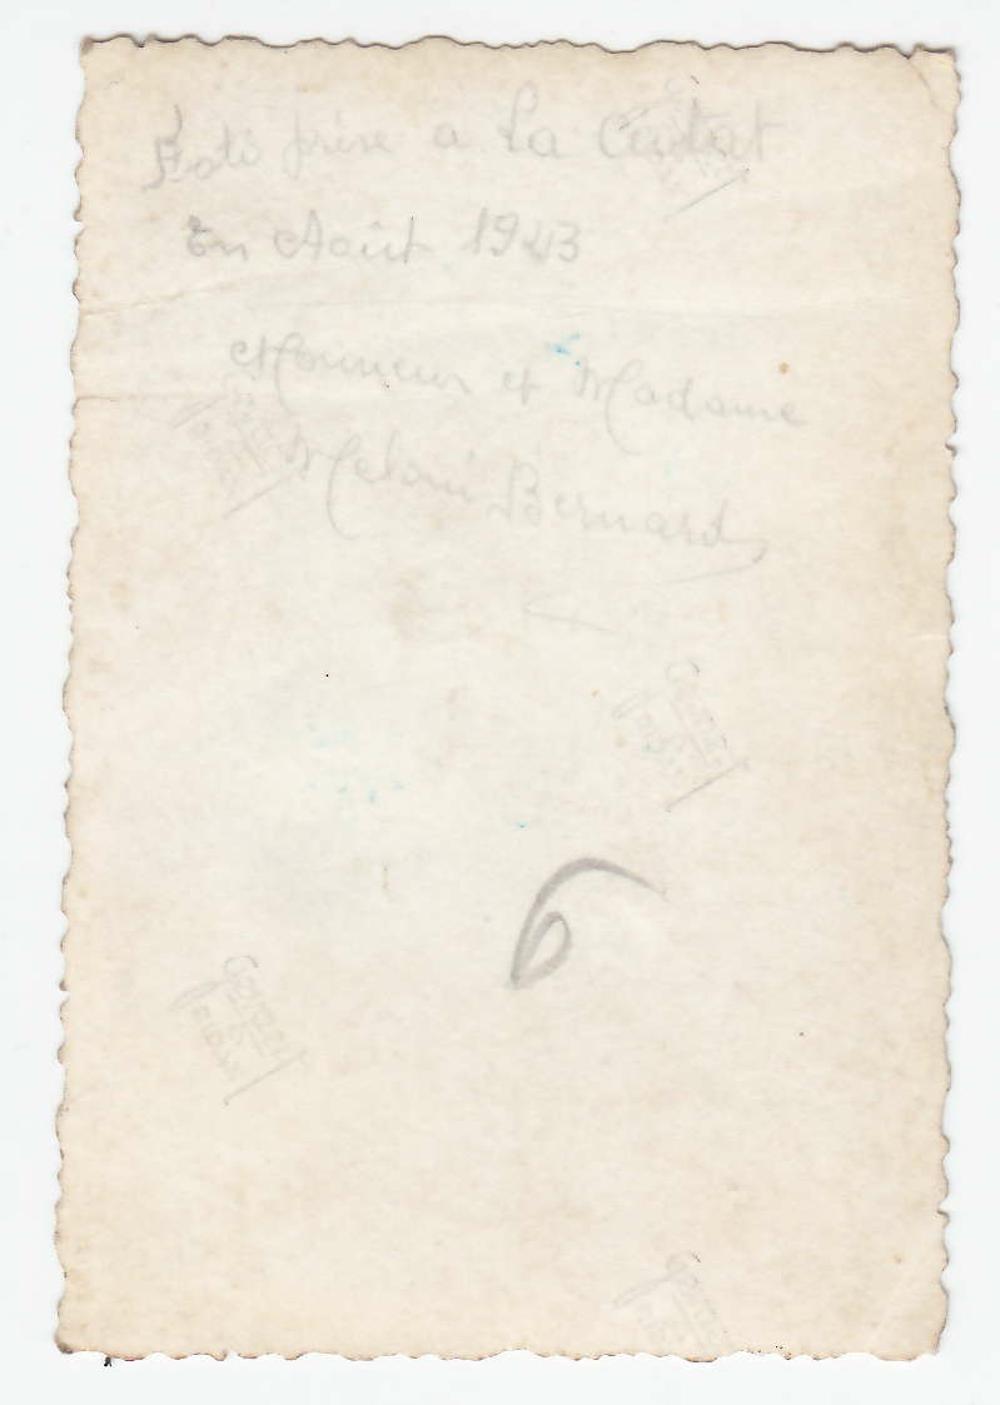 Foto prise a La Ceutat
En Août 1943
Monsieur et Madame
Meloni Bernard
6